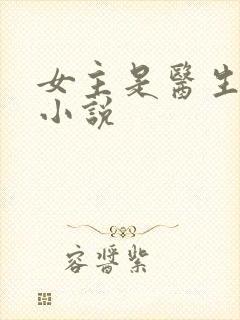 女主是醫生
小說
容醬紫